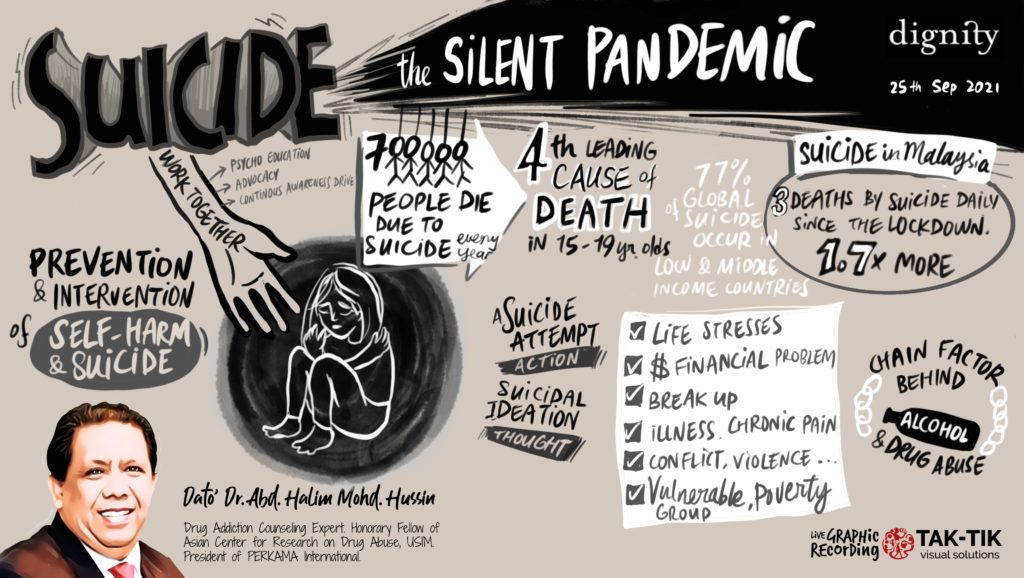 SUICIDE
the SILENT PANDEMIC
dignity
25th Sep 2021
WORK TOGETHER
→ PSYCHO EDUCATION
→ ADVOCACY
→ CONTINOUS AWARENESS DRIVE
700000
PEOPLE DIE
DUE TO
SUICIDE every
year
4th LEADING
CAUSE of
DEATH
in 15-19 yr olds
77%
of GLOBAL
SUICIDE
OCCUR IN
LOW & MIDDLE
INCOME COUNTRIES
SUICIDE in Malaysia
3 DEATHS BY SUICIDE DAILY
SINCE THE LOCKDOWN.
1.7x MORE
PREVENTION
& INTERVENTION
of SELF-HARM
& SUICIDE
A SUICIDE
ATTEMPT
ACTION
SUICIDAL
IDEATION
THOUGHT
LIFE STRESSES
$ FINANCIAL PROBLEM
BREAK UP
ILLNESS. CHRONIC PAIN
CONFLICT, VIOLENCE ...
Vulnerable, Poverty
GROUP
CHAIN FACTOR
BEHIND
ALCOHOL
& DRUG ABUSE
Dato' Dr. Abd. Halim Mohd. Hussin
Drug Addiction Counseling Expert. Honorary Fellow of
Asian Center for Research on Drug Abuse, USIM.
President of PERKAMA International.
LIVE GRAPHIC
RECORDING
TAK-TIK
visual solutions